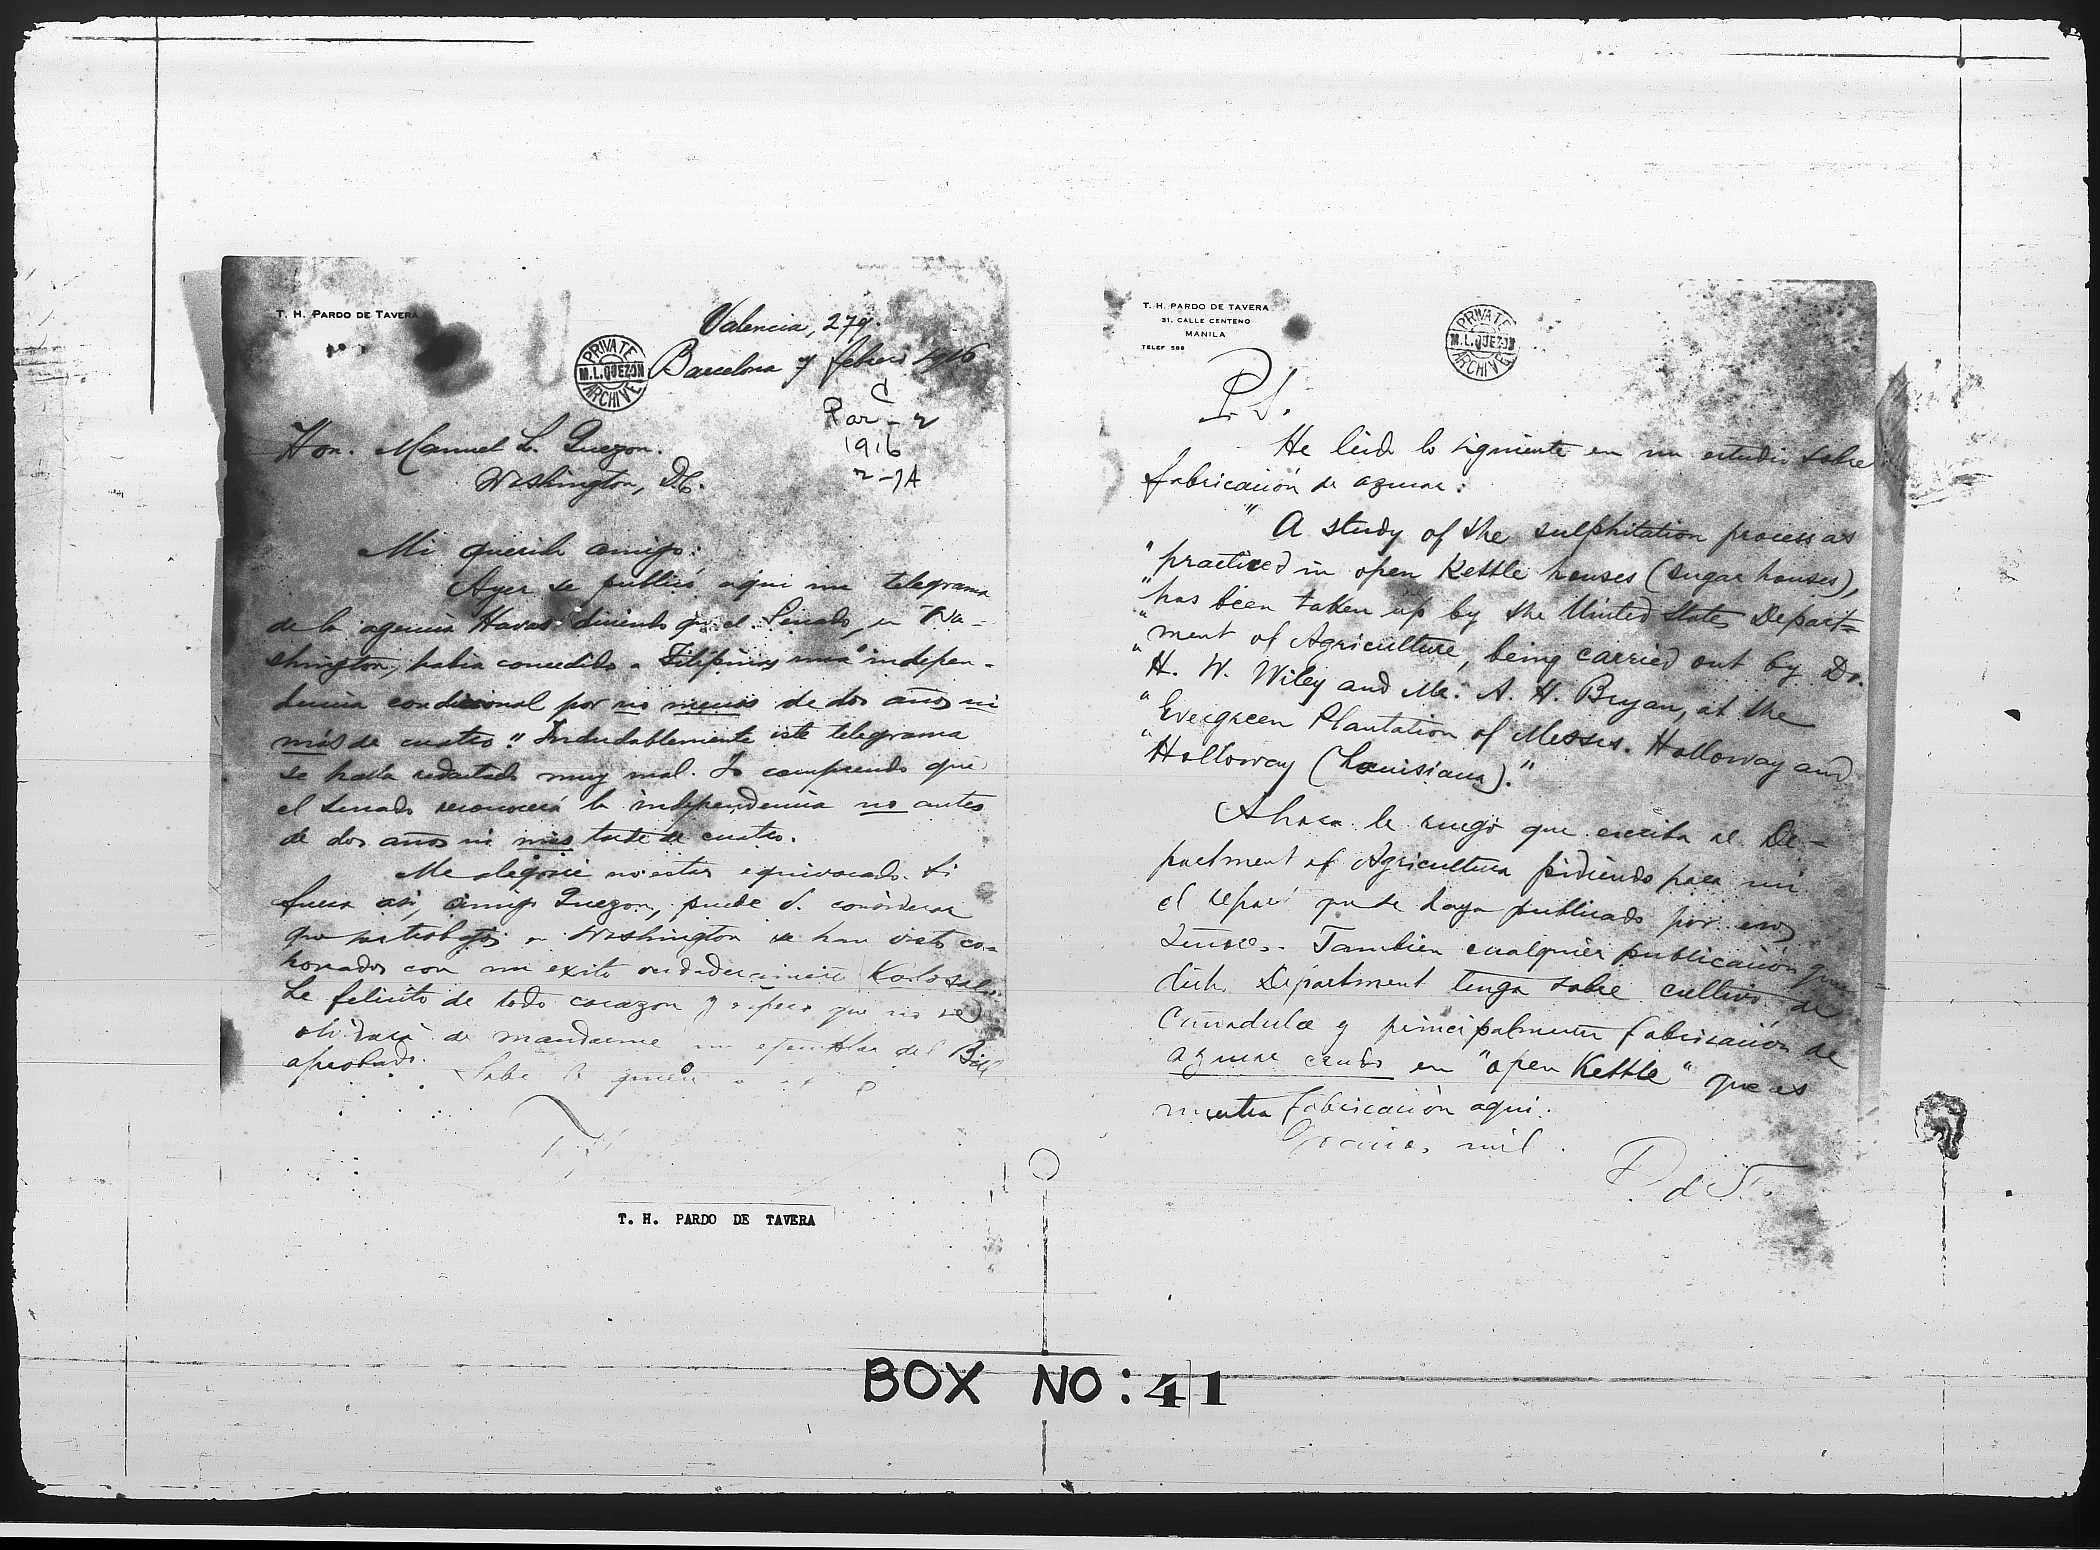 T. H. PARDO DE TAVERA
Valencia, 279.
Barcelona 7 febrero 1916
PRIVATE
M.L.QUEZON
ARCHIVE
C
Par - 2
1916
2-7A
Hon. Manuel L. Quezon.
Washington, D.C.
Mi querido amigo:
Ayer se publicó aqui un telegrama
de la agencia Havas diciendo que el Senado, en Wa-
shington, habia concedido a Filipinas una "indepen-
dencia condicional por no menos de dos años ni
más de cuatro." Indudablemente este telegrama
se halla redactado muy mal. Yo comprendo que
el Senado reconocerá la independencia no antes
de dos años ni más tarde de cuatro.
Me alegraré no estar equivocado. Si
fuera asi, amigo Quezon, puede V. considerar
que sus trabajos en Washington se han visto co-
ronados con un exito verdaderamente Kolosal.
Le felicito de todo corazon y espero que no se
olvidará de mandarme un ejemplar del Bill
aprobado.
Sabe le quiere
T. H. PARDO DE TAVERA
T. H. PARDO DE TAVERA
31, CALLE CENTENO
MANILA
TELEF 588
PRIVATE
M.L.QUEZON
ARCHIVE
P.S.
He leido lo siguiente en un estudio sobre
fabricación de azucar:
" A study of the sulphitation process as
" practiced in open Kettle houses (sugar houses),
" has been taken up by the United States Depart=
" ment of Agriculture, being carried out by Dr.
" H. W. Wiley and Mr. A. H. Bryan, at the
" Evergreen Plantation of Messrs. Holloway and
" Holloway (Louisiana)."
Ahora le ruego que escriba al De-
partment of Agricultura pidiendo para mi
el que se haya publicado por esos
Señores. Tambien cualquier publicación que
dicho Department tenga sobre cultivo de
Cañadulce y principalmente fabricación de
azucar crudo en "open Kettle" que es
nuestra fabricación aqui.
Gracias mil.
P. de T.
BOX NO: 41